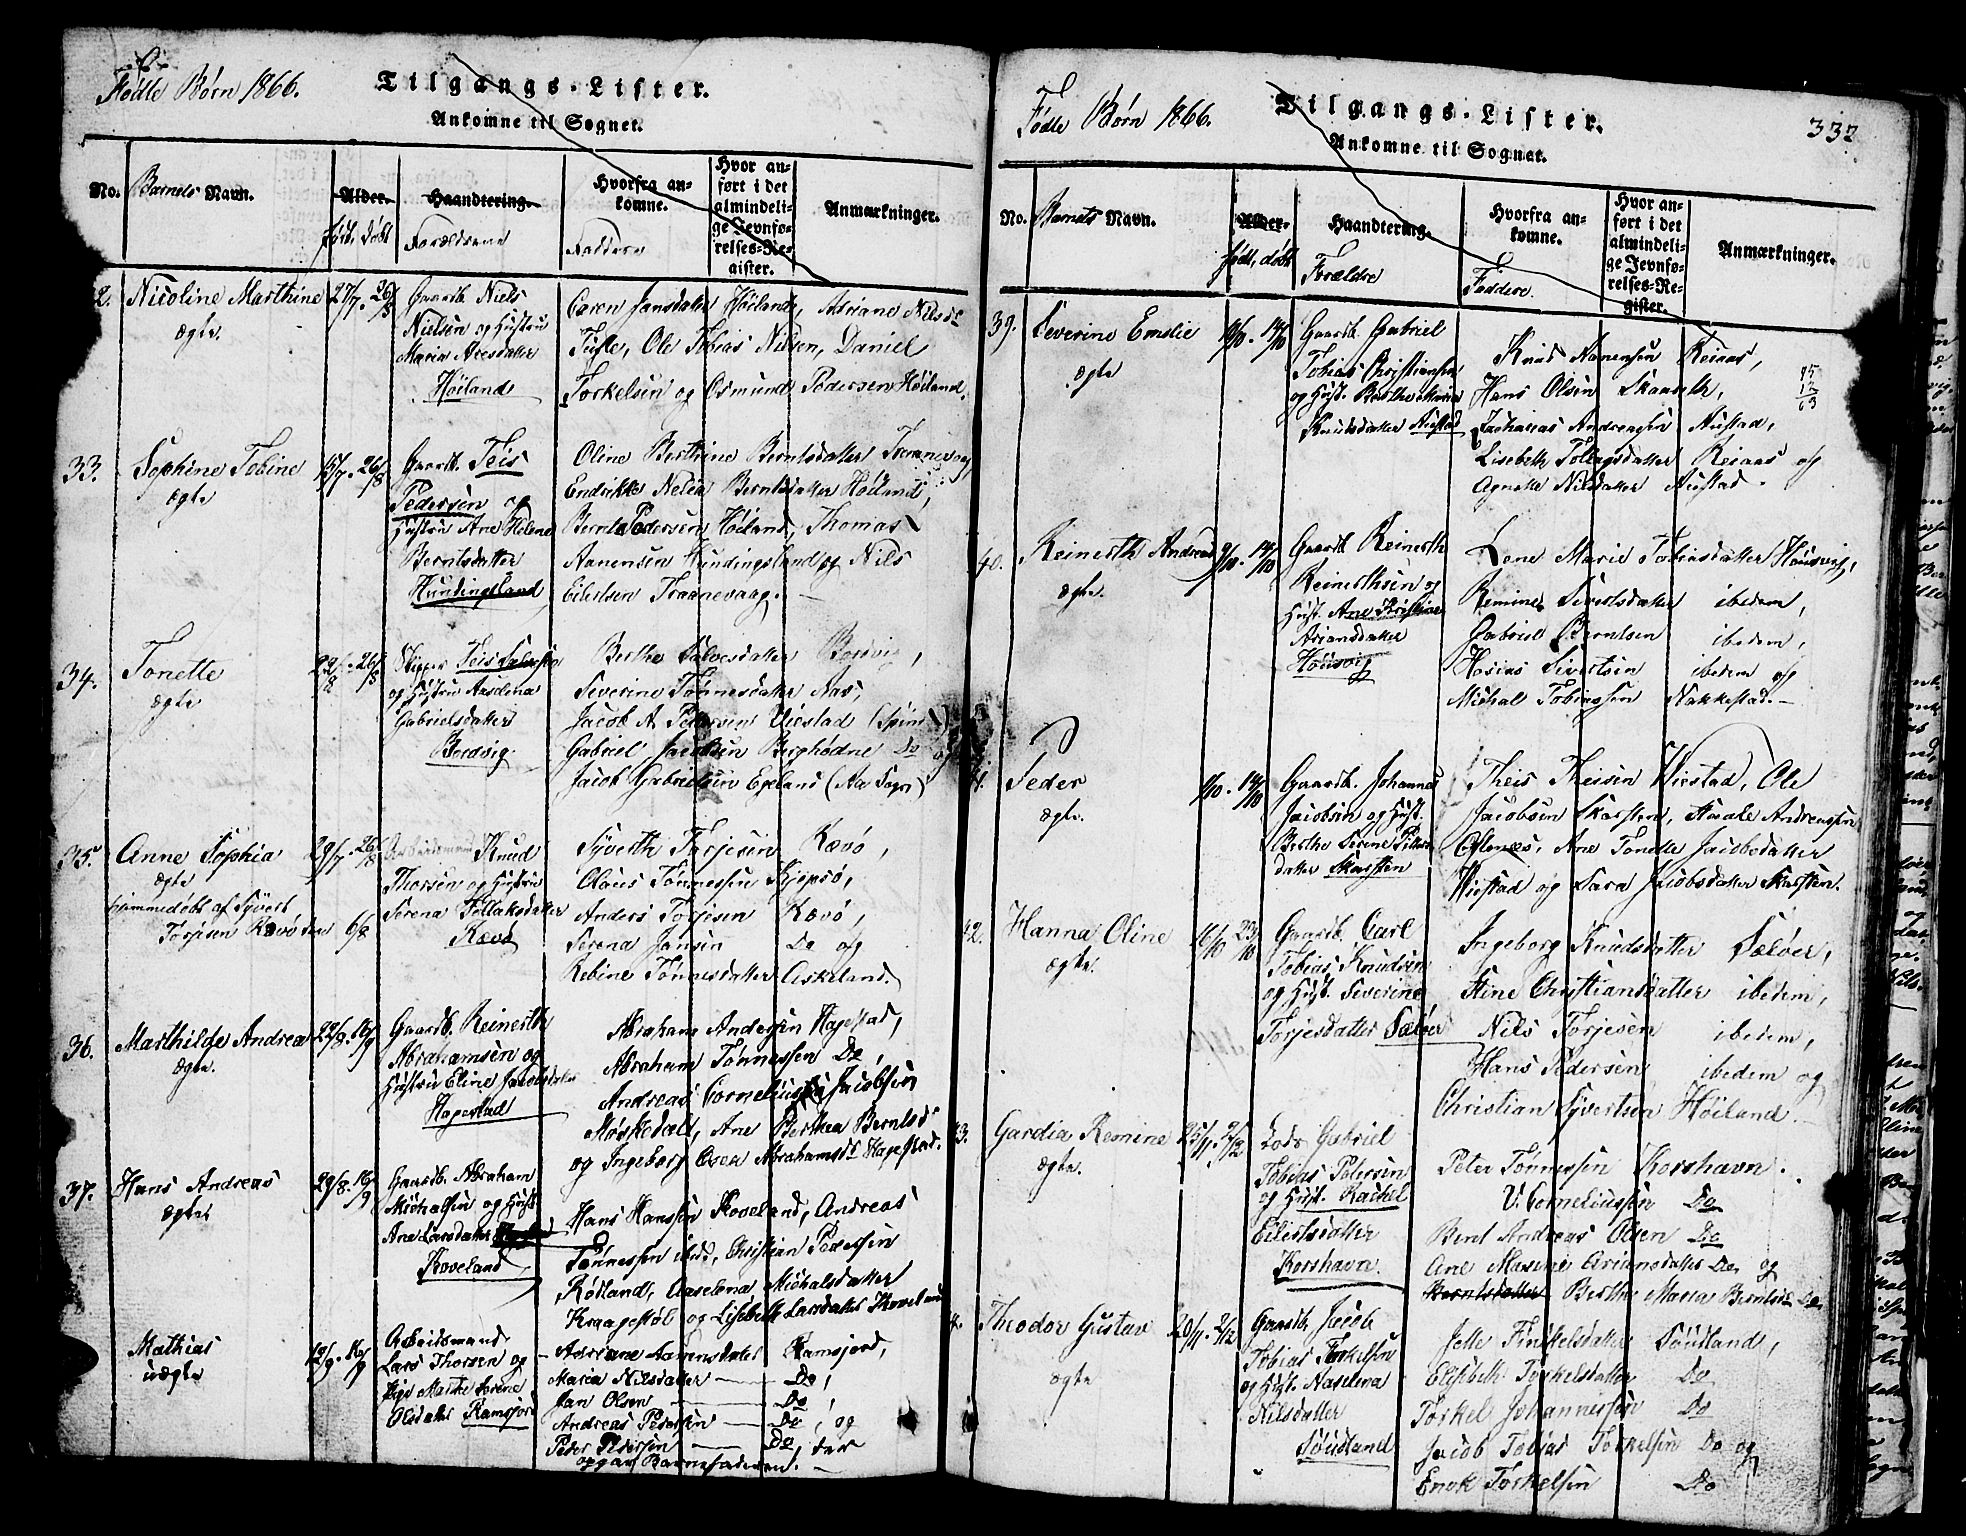 Fødte Børn 1866.
Tilgangs-Lister.
Ankomne til Sognet.
No.
Barnets Navn.
Alder.
født, døbt
Haandtering.
Forældrene
Hvorfra an-
komne.
Faddere
Hvor an-
ført i det
almindeli-
ge Jevnfø-
relses-Re-
gister.
Anmærkninger.
2. Nicoline Marthine 27/7. 26/8
ægte.
Gaardb. Niels
Nielsen og Hustru
Maria Aresdatter
Høiland
Caren Jansdatter Høiland, Adriane Nilsd
Tufte, Ole Tobias Nilsen, Daniel
Torkelsen og Osmund Pedersen Høiland.
33. Sophine Tobine 15/7. 26/8
ægte
Gaardb. Teis
Pedersen og
Hustru Ane Helene
Berntsdatter
Hundingsland
Oline Berthine Berntsdatter Traanevaag
Endrikke Nelea Berntsdatter Høiland,
Bernt Pedersen Høiland, Thomas
Aanensen Hundingsland og Nils
Eilertsen Traanevaag.
34. Tonette 22/2. 26/8
ægte
Skipper Teis Salvesen
og Hustru Aaselena
Gabrielsdatter
Bordvig
Berthe Salvesdatter Bordvig,
Severine Tønnesdatter Aas,
Jacob A. Petersen Viestad (Spim)
Gabriel Jacobsen Berghødne Do og
Jacob Gabrielsen Egeland (Aa Sogn)
35. Anne Sophia 29/7. 26/8
ægte
hjemmedøbt af Syvert
Torjesen Kævø den 6/8
Arbeidsmand Knud
Thorsen og Hustru
Serena Tollaksdatter
Kævø
Syverth Torjesen Kævø,
Claus Tønnessen Kjepsø,
Anders Torjesen Kævø,
Serena Jansen Do og
Rebine Tønnesdatter Askeland.
36. Marthilde Andrea 22/8. 16/9
Ægte.
Gaardb. Reinerth
Abrahamsen og
Hustru Eline Jacobsdatter
Hagestad
Abraham Andersen Hagestad,
Abraham Tønnessen Do,
Andreas Cornelius Jacobsen
Møskedal, Ane Berthea Berntsd
og Ingeborg Asea Abrahamsd Hagestad.
37. Hans Andreas 29/8. 16/9
ægte
Gaardb. Abraham
Michalsen og Hust.
Ane Larsdatter
Skoveland
Hans Hanssen Skoveland, Andreas
Tønnessen ibid, Christian Pedersen
Rødland, Aaselena Michalsdatter
Kraagestøl og Lisebeth Larsdatter Skoveland
Mathias 12/9. 16/9
uægte
Arbeidsmand
Lars Thorsen og
Pige Marthe Serene
Olsdatter Ramsjord
Adriane Aanensdatter Ramsjord,
Maria Nilsdatter Do,
Jan Olsen Do
Andreas Pedersen Do, og
Peder Pedersen Do, der
opgav Barnefaderen.
Fødte Børn 1866.
Tilgangs-Lister.
Ankomne til Sognet.
332
No.
Barnets Navn.
Alder.
født, døbt
Haandtering.
Forældre
Hvorfra an-
komne.
Faddere.
Hvor an-
ført i det
almindeli-
ge Jevnfø-
relses-Re-
gister.
Anmærkninger.
39. Severine Emelie 14/10
ægte
Gaardb. Gabriel
Tobias Christiansen
og Hust. Berthe Maria
Knudsdatter Austad
Knud Nanensen Reiaas,
Hans Olsen Skaaseth,
Zacharias Andreassen Austad,
Lisebeth Tollagsdatter Reiaas og
Agnethe Nilsdatter Austad.
40. Reinerth Andreas 9/10. 14/10
ægte.
Gaardb. Reinerth
Reinerthsen og
Hust. Ane Kristine
Ariansdatter
Housvig
Lene Marie Tobiasdatter Housvig,
Remine Sivertsdatter ibedem,
Gabriel Berntsen ibedem,
Hosias Sivertsen ibedem og
Michal Tobiassen Nakkestad.
Peder 1/10. 14/10
ægte.
Gaardb. Johannes
Jacobsen og Hust.
Berthe Serine Peters-
datter Skarsten
Theis Theisen Virstad, Ole
Jacobsen Skarsten, Andreassen
Ane Tonette Jacobsdatter
Virstad og Sara Jacobsdatter Skarsten.
42. Hanna Oline 16/10 23/10
ægte.
Gaardb. Carl
Tobias Knudsen
og Hust. Severine
Torjesdatter Sæløer
Ingeborg Knudsdatter Sæløer,
Stine Christiansdatter ibedem,
Nils Torjesen ibedem,
Hans Pedersen ibedem og
Christian Syvertsen Høiland.
3. Gardia Remine 25/11. 2/12
ægte.
Lods Gabriel
Tobias Petersen
og Hust. Rachel
Eilertsdatter
Korshavn.
Peter Tønnessen Korshavn.
V. Corneliussen Do
Bent Andreas Olsen Do
Ane Maxine Ariansdatter Do og
Berntsdatter Berthe Maria Berntsd Do
4. Theodor Gustav 20/11. 2/12
ægte
Gaardb. Jacob
Tobias Torkelsen
og Hust. Aaselena
Nilsdatter
Søudland
Jette Torkelsdatter Søudland,
Elisebeth Torkelsdatter Do
Torkel Johannessen Do
Jacob Tobias Torkelsen Do og
Enok Torkelsen Do